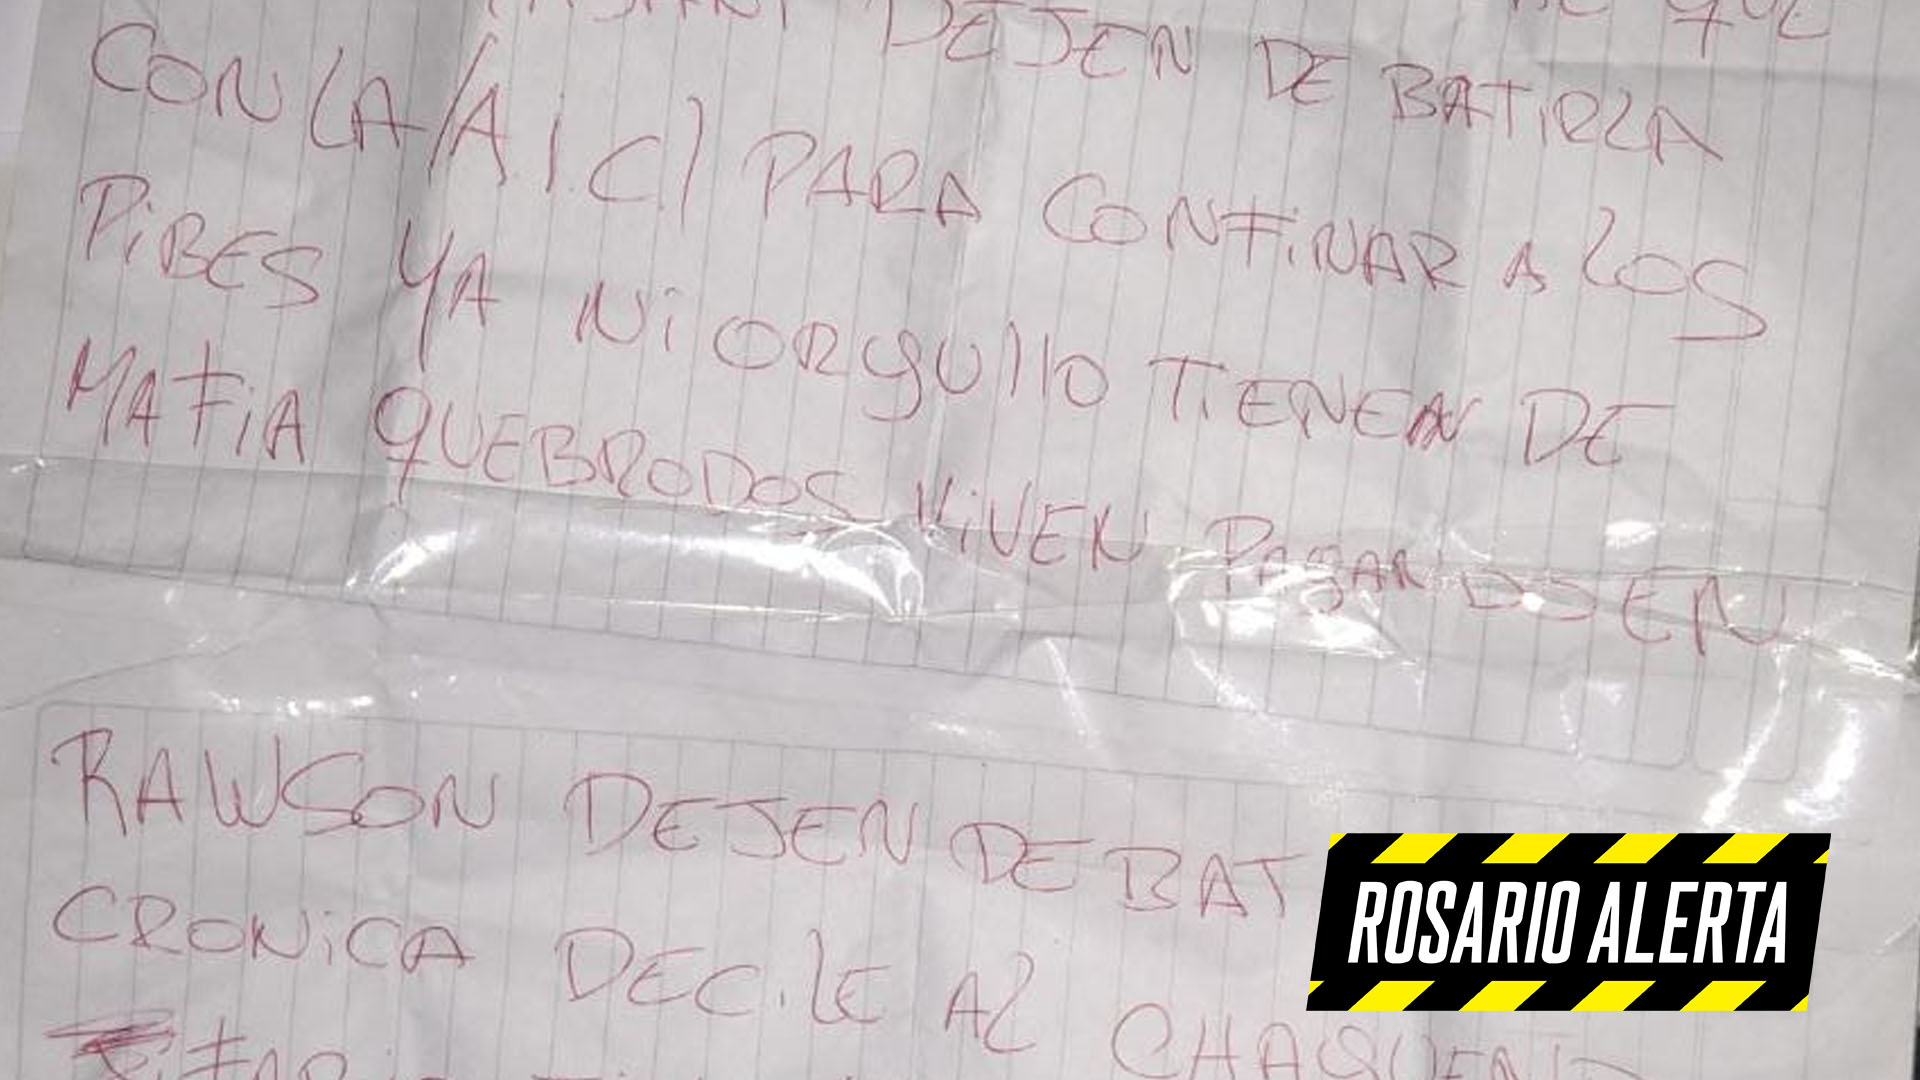 DEJEN DE BATIRLA
CON LA /A.I.C/ PARA CONFINAR A LOS
PIBES YA NI ORGULLO TIENEN DE
MAFIA QUEBRODOS VIVEN PAGANDO EN
RAWSON DEJEN DE BAT
CRONICA DECILE AL CHAQUEÑO
ROSARIO ALERTA